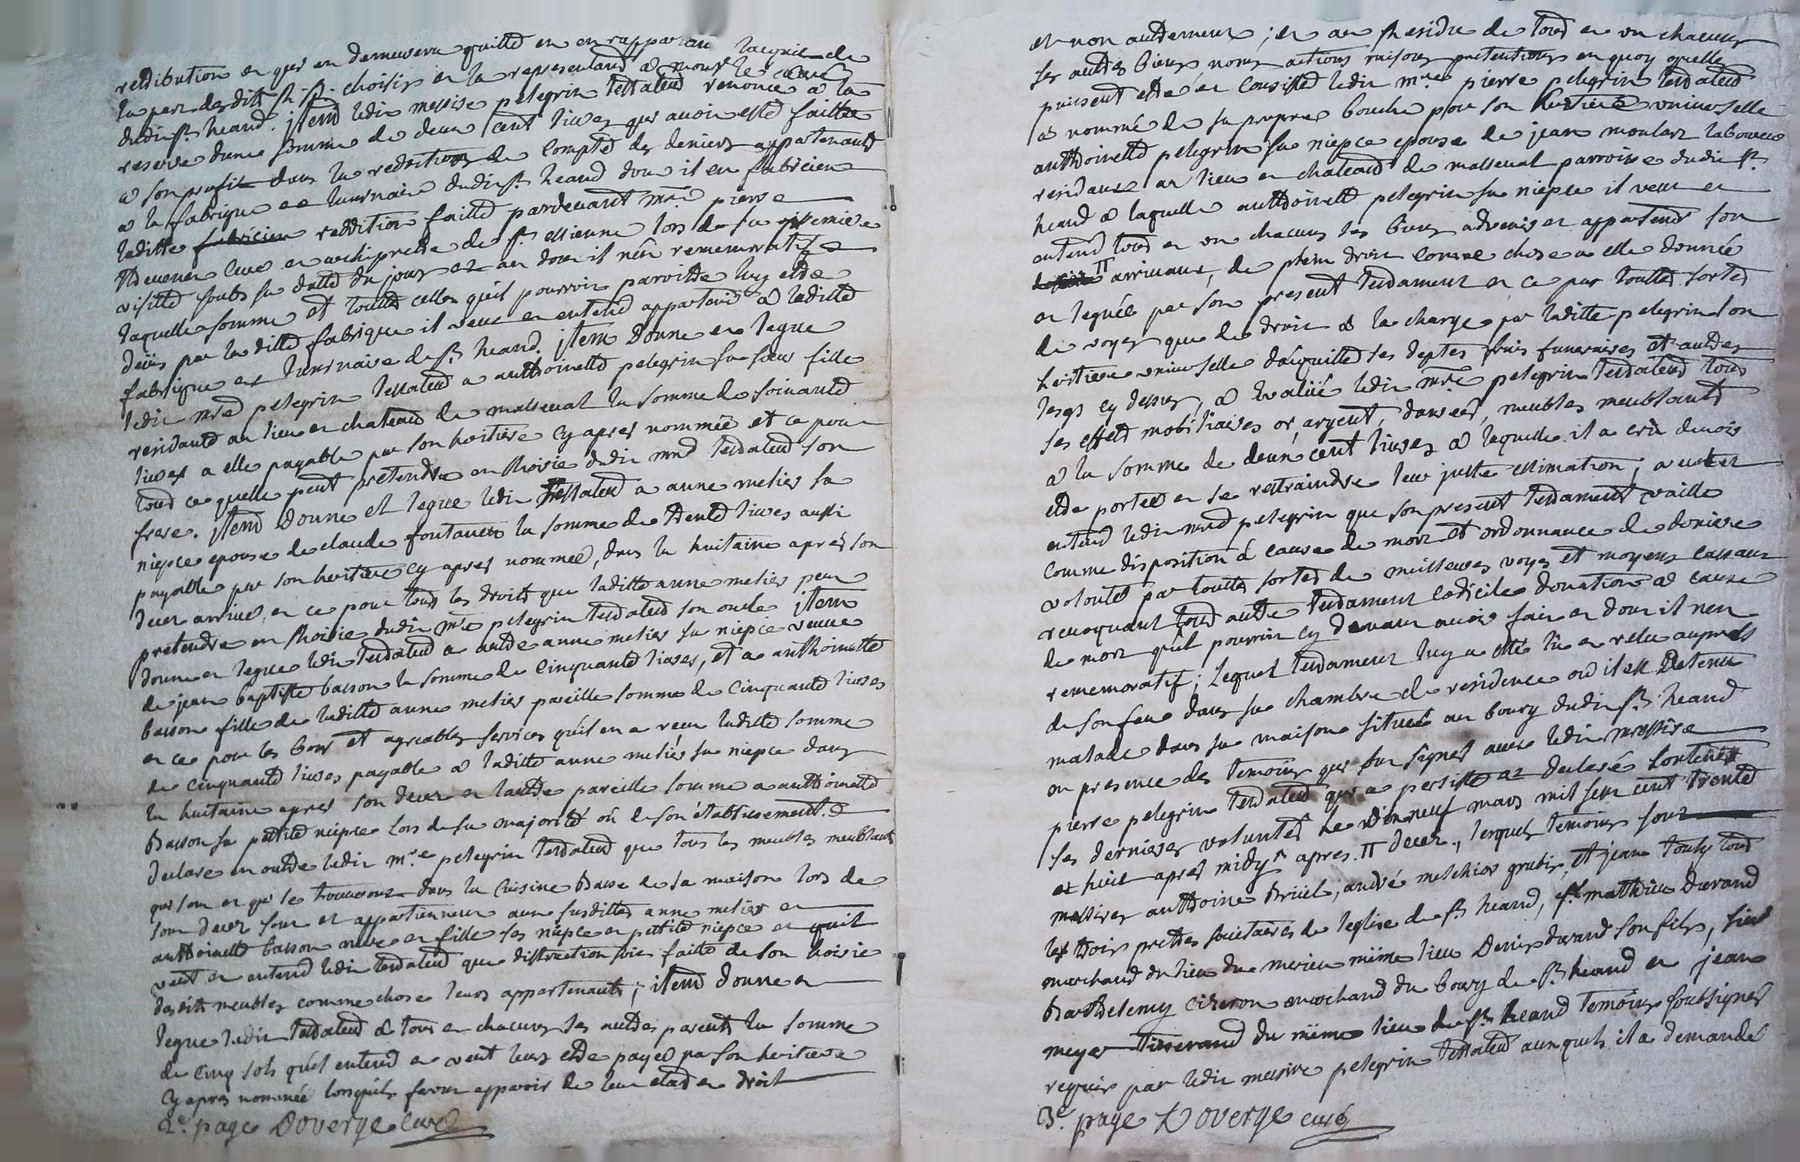 retribution et qui en demeurera quitte en en rapportant laquit de
la part desditts srs choisis et la representant a monsr le curé
dudit st heand. jtem ledit messire pelegrin testateur renonce a la
reserve dune somme de deux cent livres qui avoit esté faitte
a son profit dans la reddition de compte des deniers appartenant
a la fabrique et luminaire dudit st heand dont il est fabricien
laditte reddition faitte pardevant mre pierre
thevenet curé et archipretre de st estienne lors de sa premiere
visitte soubs sa datte du jour et an dont il n'est rememoratif
laquelle somme et toutte celles qu'il pourroit paroittre luy etre
deües par la ditte fabrique il veut et entend appartenir a laditte
fabrique et luminaire de st heand. jtem donne et legue
ledit mre pelegrin testateur a anthoinette pelegrin sa sœur fille
residante au lieu et chateau de malleval la somme de soixante
livres a elle payable par son heritiere cy apres nommée et ce pour
tout ce quelle peut pretendre en l'hoirie dudit mre testateur son
frere. jtem donne et legue ledit testateur a anne metier sa
niepce epouse de claude fontanes la somme de trente livres aussi
payable par son heritiere cy apres nommée, dans la huitaine apres son
deces arrivé, et ce pour tous les droits que laditte anne metier peut
pretendre en l'hoirie dudit mre pelegrin testateur son oncle jtem
donne et legue ledit testateur a autre anne metier sa niepce veuve
de jean baptiste basson la somme de cinquante livres, et a anthoinette
basson fille de laditte anne metier pareille somme de cinquante livres
et ce pour les bons et agreables services qu'il en a reçu laditte somme
de cinquante livres payable a laditte anne metier sa niepce dans
la huitaine apres son deces et lautre pareille somme a anthoinette
basson sa petitte niepce lors de sa majorité où de son etablissement. et
declare en outre ledit mre pelegrin testateur que tous les meubles meublants
qui sont et qui se trouveront dans la cuisine basse de sa maison lors de
son deces sont et appartiennent aux susdittes anne metier et
anthoinette basson mere et fille ses niepce et petitte niepce et quil
veut et entend ledit testateur que distraction soit faitte de son hoirie
desdits meubles comme chose leurs appartenants; jtem donne et
legue ledit testateur a tous et chacuns ses autres parents la somme
de cinq sols qu'il entend et veut leurs etre payés par son heritiere
cy apres nommée lorsquils feront apparoir de leur etat et droit
2e. page Doverge curé
et non autrement; et au residu de tous et un chacuns
ses autres biens noms actions raisons pretentions en quoy quelle
puissent etre et consister ledit mre pierre pelegrin testateur
a nommé de sa propre bouche pour son heritiere universelle
anthoinette pelegrin sa niepce epouse de jean moulard laboureur
residante au lieu et chateau de malleval parroisse dudit st
heand a laquelle anthoinette pelegrin sa niepce il veut et
entend tous et un chacuns ses biens advenir et appartenir son
arrivant, de plein droit comme chose a elle donnée
et leguée par son present testament et ce par touttes sortes
de voyes que de droit a la charge par laditte pelegrin son
heritiere universelle dacquitter ses deptes frais funeraires et autres
legs cy dessus, a evalué ledit mre pelegrin testateur tous
ses effets mobiliaires or, argent, danrées, meubles meublants
a la somme de deux cent livres a laquelle il a crû devoir
etre portée et se restraindre leur juste estimation; a voulu et
entend ledit mre pelegrin que son present testament vaille
comme disposition à cause de mort et ordonnance de derniere
volonté par touttes sortes de meilleures voyes et moyens cassant
revoquant tout autre testament codicile donation a cause
de mort qu'il pourroit cy devant avoir fait et dont il n'en
rememoratif; lequel testament luy a eté lu et relu aupres
de son feu dans sa chambre de residence où il est detenu
malade dans sa maison situeé au bourg dudit st heand
en presence des temoins qui ont signés avec ledit messire
pierre pelegrin testateur qui a persisté et declaré contenir
ses dernieres volontés Le dixneuf mars mil sept cent trente
et huit apres midy apres deces, lesquels temoins sont
messires anthoine Briel, andré melchior grubis, et jean touly tous
les trois pretres societaires de leglise de st heand, sr matthieu durand
marchand du lieu du mesme même lieu Denis durand son fils, sieur
Barthelemy Citeron marchand du bourg de st heand et jean
meyer tisserand du même lieu de st heand temoins soubsignés
requis par ledit messire pelegrin testateur auxquels il a demandé
3e. page Doverge curé